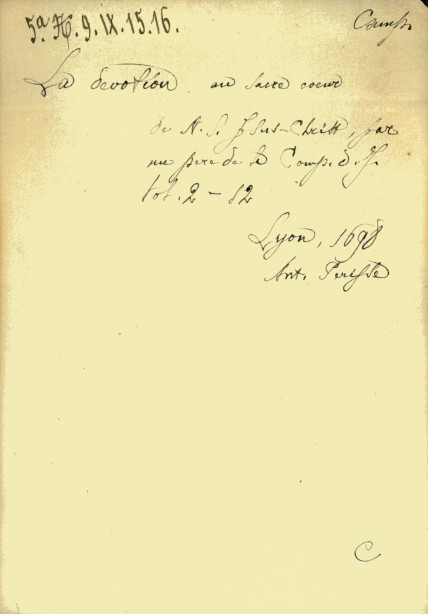 5ª H. 9. IX. 15. 16.
Comp.
La devotion au sacre coeur
de N. S. Jsus-Christ, par
un pere de la Comp. d. J.
Vol. 2 – 12
Lyon, 1698
Ant.
C